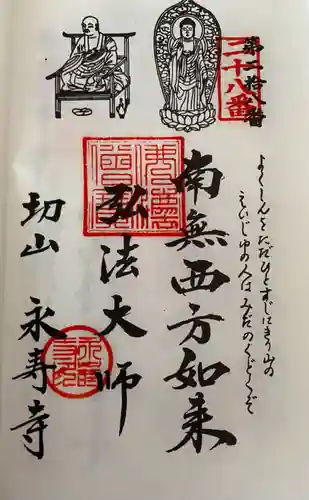 第二拾八番
二十八番
よくしんをただひとすじにきり山の
えいじゆの人はみだのくどくぞ
南無西方如来
弘法大師
切山 永寿寺